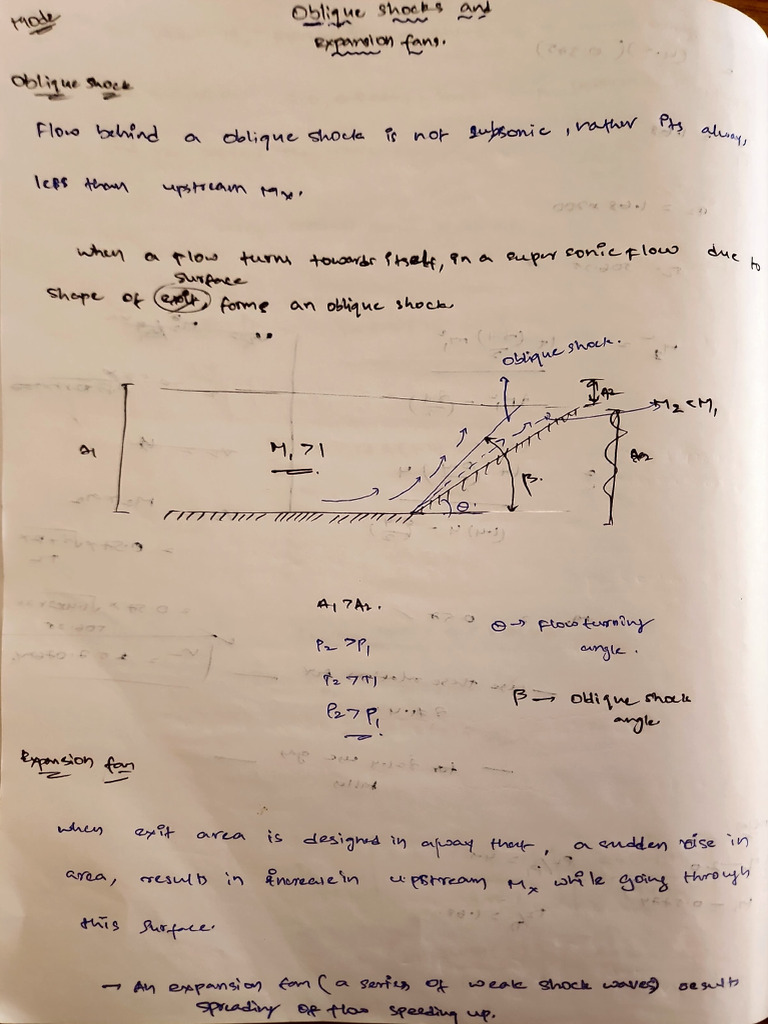 Mode
Oblique shocks and
expansion fans.
Oblique shock
Flow behind a oblique shock is not subsonic, rather its always
less than upstream Mx.
when a flow turns towards itself, in a super sonic flow due to
surface
shape of exit, forms an oblique shock
Oblique shock.
A2
M2 < M1
A1
M1 >1
β
A2
θ
A1 > A2.
P2 > P1
T2 > T1
ρ2 > ρ1
θ → Flow turning
angle.
β → Oblique shock
angle
Expansion fan
when exit area is designed in a way that, a sudden rise in
area, results in increase in upstream Mx while going through
this surface.
→ An expansion fan (a series of weak shock waves) results
spreading of flow speeding up.